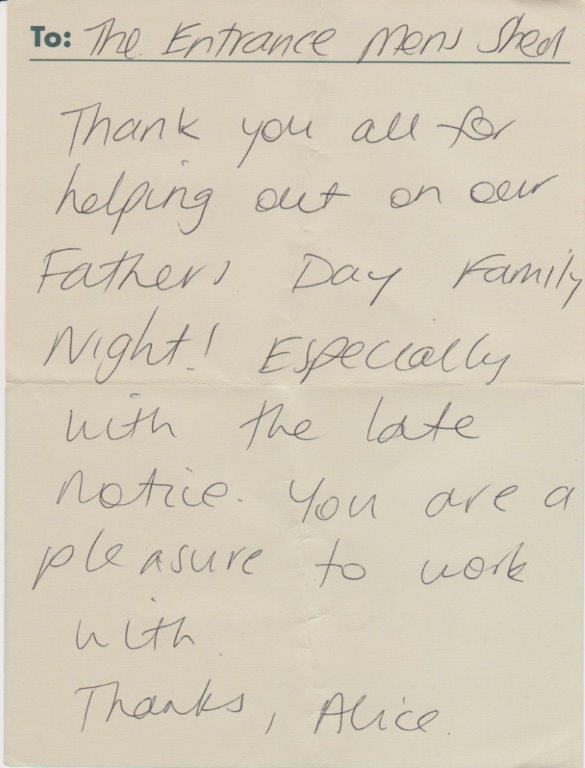 To: The Entrance Mens Shed
Thank you all for
helping out on our
Fathers Day Family
Night! Especially
with the late
notice. You are a
pleasure to work
with
Thanks, Alice.